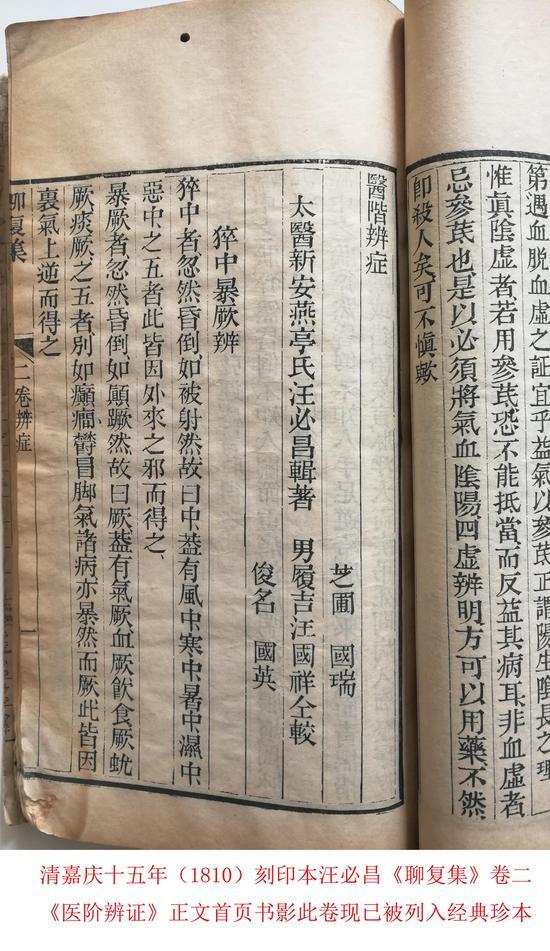 第遇血脱血虛之証宜乎益氣以參芪正謂陽生陰長之理
惟眞陰虛者若用參芪恐不能抵當而反益其病耳非血虛者
忌參芪也是以必須將氣血陰陽四虛辨明方可以用藥不然
卽殺人矣可不愼歟
醫階辨症
芝圃 國瑞
太醫新安燕亭氏汪必昌輯著 男履吉汪國祥仝較
俊名 國英
猝中暴厥辨
猝中者忽然昏倒如被射然故曰中葢有風中寒中暑中濕中
惡中之五者此皆因外來之邪而得之
暴厥者忽然昏倒如顛蹶然故曰厥葢有氣厥血厥飮食厥蚘
厥痰厥之五者別如癲癎欝冒脚氣諸病亦暴然而厥此皆因
裏氣上逆而得之
聊復集 二卷辨症 一
清嘉庆十五年（1810）刻印本汪必昌《聊复集》卷二
《医阶辨证》正文首页书影此卷现已被列入经典珍本